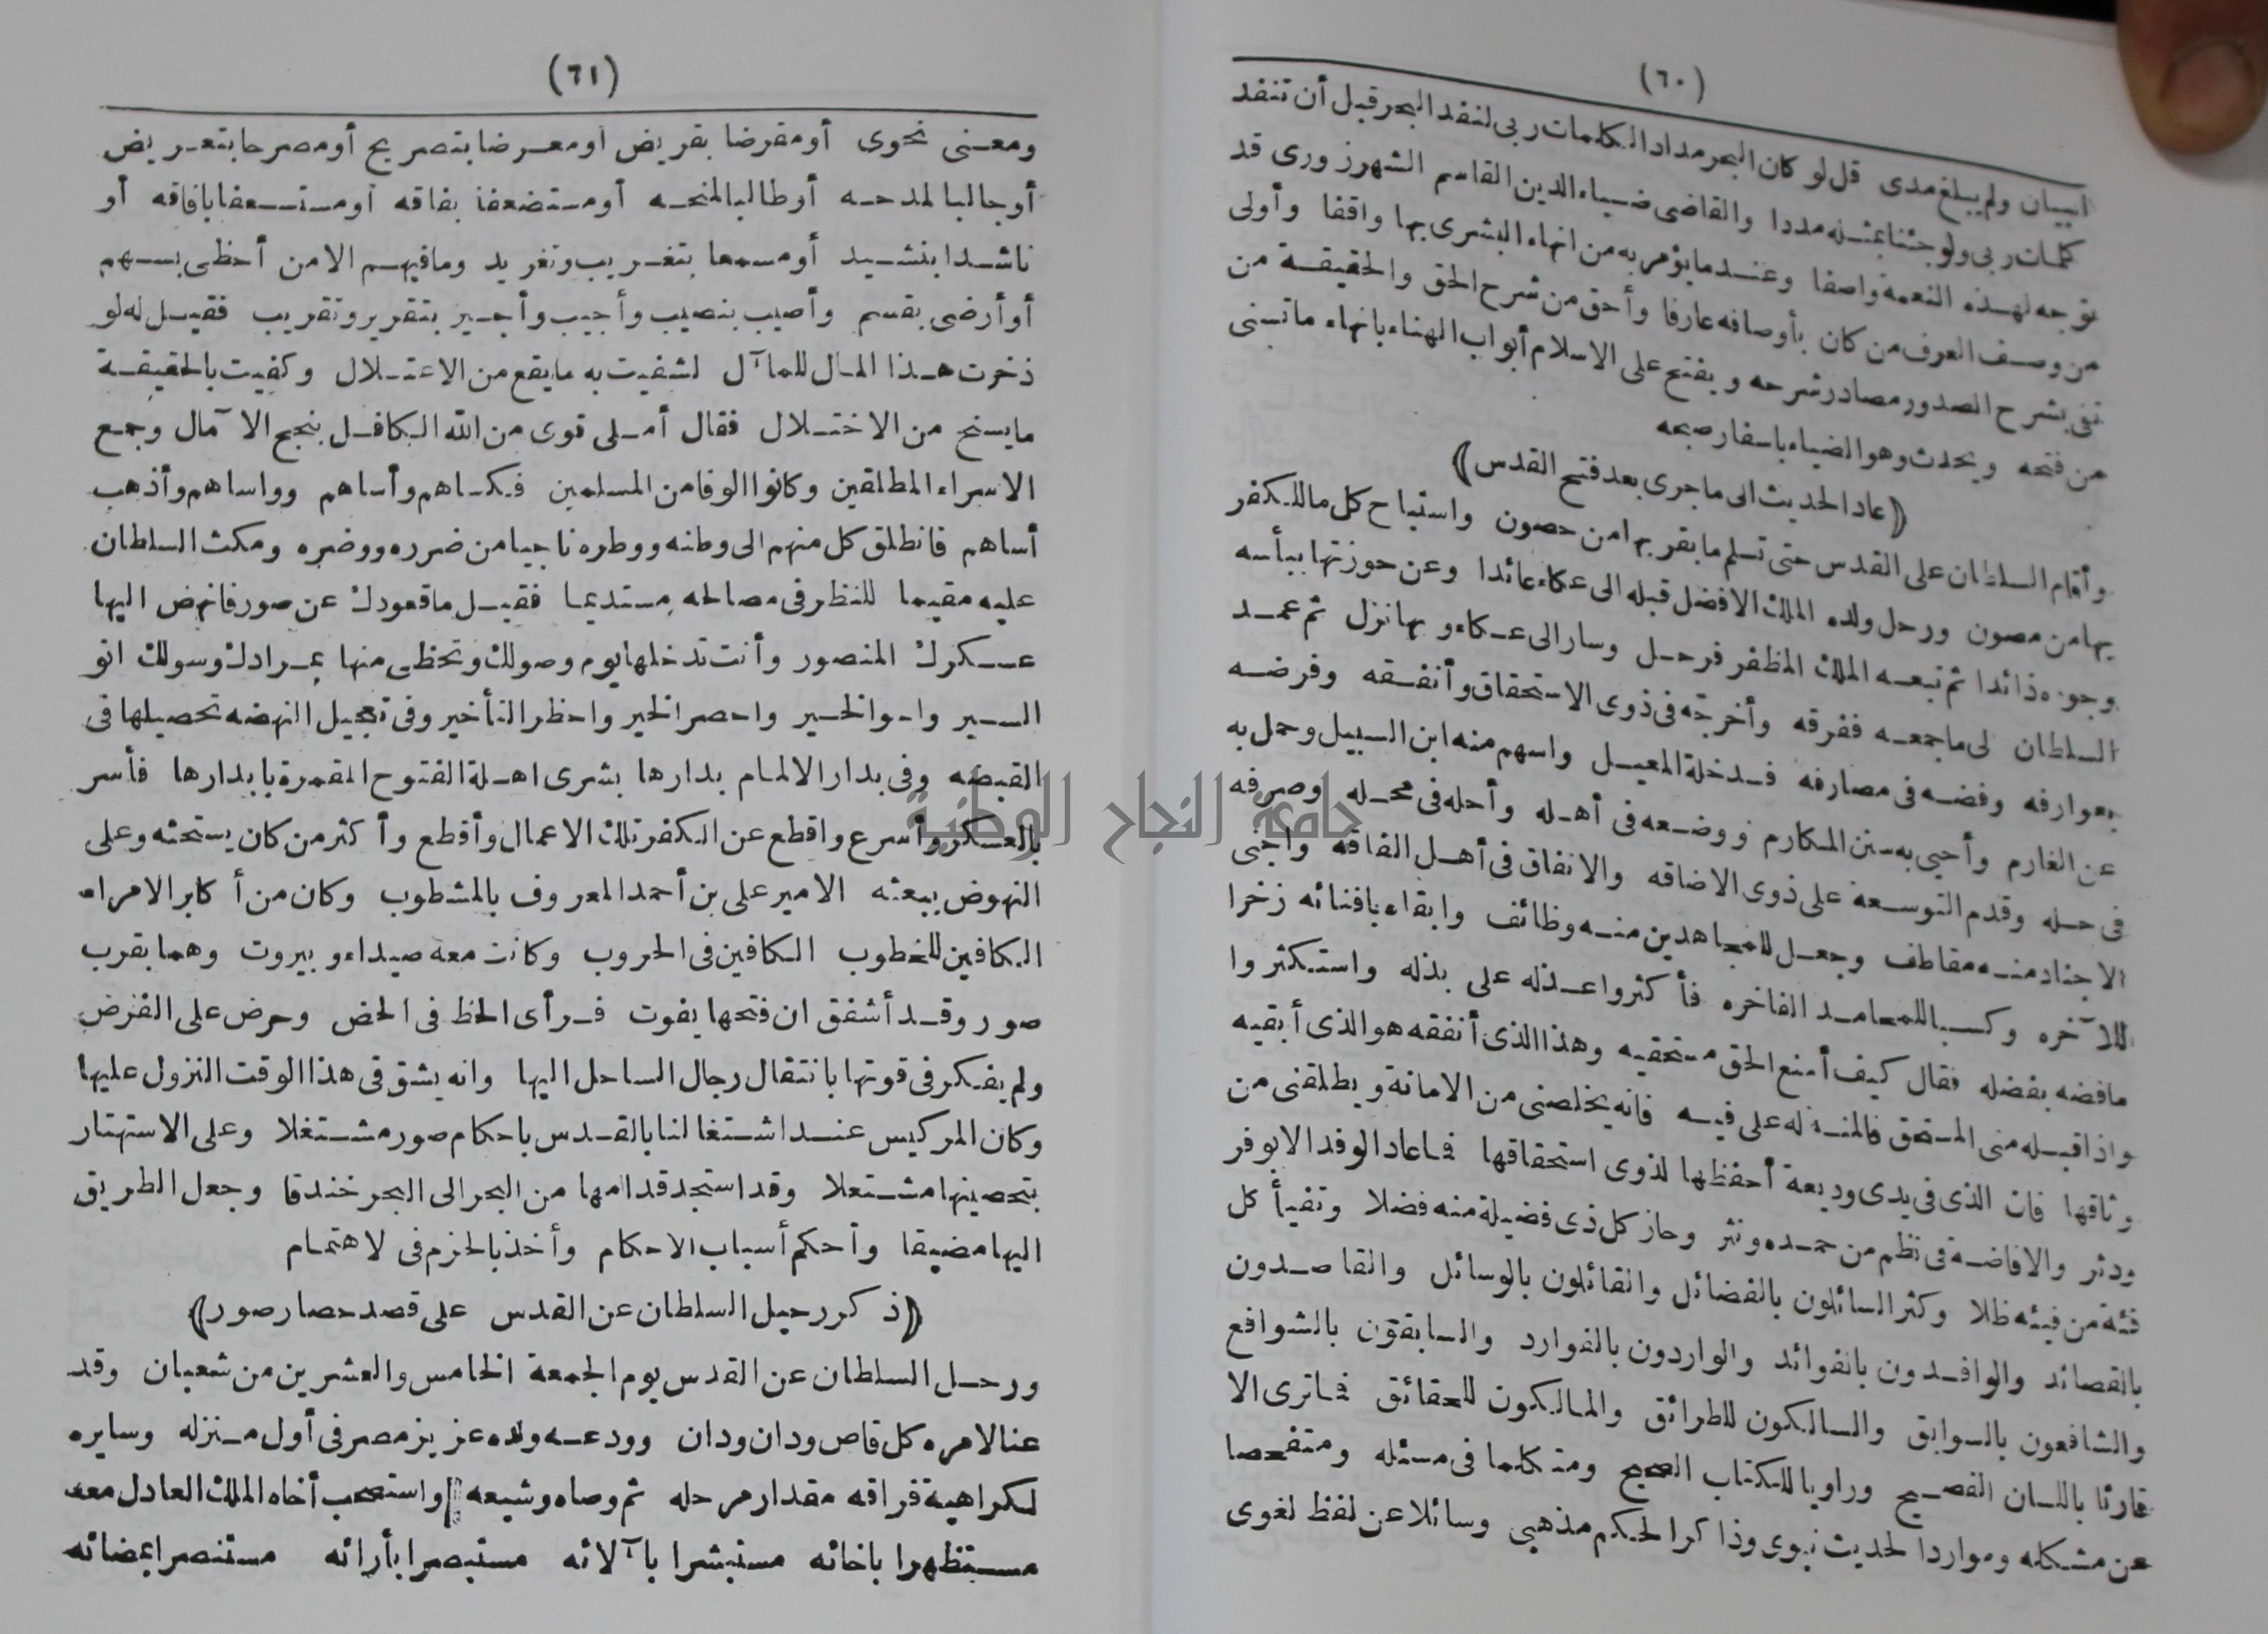 (٦٠)
البيان ولم يبلغ مدى قل لو كان البحر مداد الكلمات ربى لنفد البحر قبل أن تنفد
كلمات ربى ولو جئنا بمثله مددا والقاضى ضياء الدين القاسم الشهرزورى قد
توجه لهذه النعمة واصفا وعند ما يؤمر به من انهاء البشرى بها واقفا وأولى
من وصف العرف من كان بأوصافه عارفا وأحق من شرح الحق والحقيقة من
تفى بشرح الصدور مصادر شرحه ويفتح على الاسلام أبواب الهناء بانهاء ما تسنى
من فتحه ويحدث وهو الضياء باسفار صبحه
(عاد الحديث الى ما جرى بعد فتح القدس)
وأقام السلطان على القدس حتى تسلم ما بقربها من حصون واستباح كل ما للكفر
بها من مصون ورحل ولده الملك الافضل قبله الى عكاء عائدا وعن حوزتها ببأسه
وجوده ذائدا ثم تبعه الملك المظفر فرحل وسار الى عكاء وبها نزل ثم عمد
السلطان لى ما جمعه ففرقه وأخرجه فى ذوى الاستحقاق وأنفقه وفرضه
بعوارفه وفضه فى مصارفه فسد خلة المعيل واسهم منه ابن السبيل وحمل به
عن الغارم وأحيى به سنن المكارم ووضعه فى أهله وأحله فى محله وصرفه
فى حله وقدم التوسعة على ذوى الاضاقه والانفاق فى أهل الفاقه واجنى
الاجناد منه مقاطف وجعل للمجاهدين منه وظائف وابقاه بافنائه زخرا
للآخره وكسبا للمحامد الفاخره فأكثروا عذله على بذله واستكثروا
ما فضه بفضله فقال كيف أمنع الحق مستحقيه وهذا الذى أنفقه هو الذى أبقيه
واذا قبله منى المستحق فالمنة له على فيه فانه يخلصنى من الامانة ويطلقنى من
وثاقها فان الذى فى يدى وديعة أحفظها لذوى استحقاقها فعاد الوفد الا بوفر
ودثر والافاضة فى نظم من حمده ونثر وحاز كل ذى فضيلة منه فضلا وتفيأ كل
فئة من فيئه ظلا وكثر السائلون بالفضائل والقائلون بالوسائل والقاصدون
بالقصائد والوافدون بالفوائد والواردون بالفوارد والسابقون بالشوافع
والشافعون بالسوابق والسالكون للطرائق والمالكون للحقائق فما ترى الا
قارئا باللسان الفصيح وراويا للكتاب الصحيح ومتكلما فى مسئله ومتفحصا
عن مشكله وموردا لحديث نبوى وذاكرا لحكم مذهبى وسائلا عن لفظ لغوى
(٦١)
ومعنى نحوى أو مقرضا بقريض أو معرضا بتصريح أو مصرحا بتعريض
أو جالبا لمدحه أو طالبا لمنحه أو مستضعفا بفاقه أو مستسعفا بافاقه أو
ناشدا بنشيد أو مسمعا بتغريب وتغريد وما فيهم الا من أحظى بسهم
أو أرضى بقسم وأصيب بنصيب وأجيب وأجيز بتقرير وتقريب فقيل له لو
ذخرت هذا المال للمآل لشفيت به ما يقع من الاعتلال وكفيت بالحقيقة
ما يسنح من الاختلال فقال أملى قوى من الله الكافل بنجح الآمال وجمع
الاسراء المطلقين وكانوا الوفا من المسلمين فكساهم وأساهم وواساهم وأذهب
أساهم فانطلق كل منهم الى وطنه ووطره ناجيا من ضرره ووضره ومكث السلطان
عليه مقيما للنظر فى مصالحه مستديما فقيل ما قعودك عن صور فانهض اليها
عسكرك المنصور وأنت تدخلها يوم وصولك وتحظى منها بمرادك وسولك انو
السير وانو الخير واحصر الخير واحظر التأخير وفى تعجيل النهضه تحصيلها فى
القبضه وفى بدار الالمام بدارها بشرى اهلة الفتوح المقمرة بابدارها فأسر
بالعسكر وأسرع واقطع عن الكفر تلك الاعمال وأقطع وأكثر من كان يستحثه وعلى
النهوض يبعثه الامير على بن أحمد المعروف بالمشطوب وكان من أكابر الامراء
الكافين للخطوب الكافين فى الحروب وكانت معه صيداء وبيروت وهما بقرب
صور وقد أشفق ان فتحها يفوت فرأى الحظ فى الحض وحرض على الفرض
ولم يفكر فى قوتها بانتقال رجال الساحل اليها وانه يشق فى هذا الوقت النزول عليها
وكان المركيس عند اشتغالنا بالقدس باحكام صور مشتغلا وعلى الاستهتار
بتحصينها مشتعلا وقد استجد قدامها من البحر الى البحر خندقا وجعل الطريق
اليها مضيقا وأحكم أسباب الاحكام وأخذ بالحزم فى لاهتمام
(ذكر رحيل السلطان عن القدس على قصد حصار صور)
ورحل السلطان عن القدس يوم الجمعة الخامس والعشرين من شعبان وقد
عنا لامره كل قاص ودان ودان وودعه ولده عزيز مصر فى أول منزله وسايره
لكراهية فراقه مقدار مرحله ثم وصاه وشيعه واستصحب أخاه الملك العادل معه
مستظهرا باخائه مستبشرا بآلائه مستبصرا بأرائه مستنصرا بمضائه
جامعة النجاح الوطنية